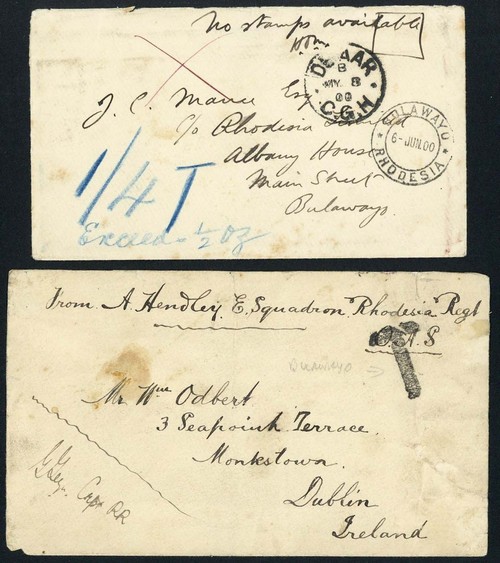 No stamps available
DE AAR
B
MY 8
00
C.G.H
J. C. Mavee Esq
c/o Rhodesia Limited
Albany House
Main Street
Bulawayo.
BULAWAYO
6-JUN.00
RHODESIA
1/4 T
Exceed - 1/2 oz
From A. Hendley. E. Squadron, Rhodesia Regt
O.A.S
T
Bulawayo →
Mr Wm Odbert
3 Seapoint Terrace.
Monkstown.
Dublin
Ireland
Capt RR